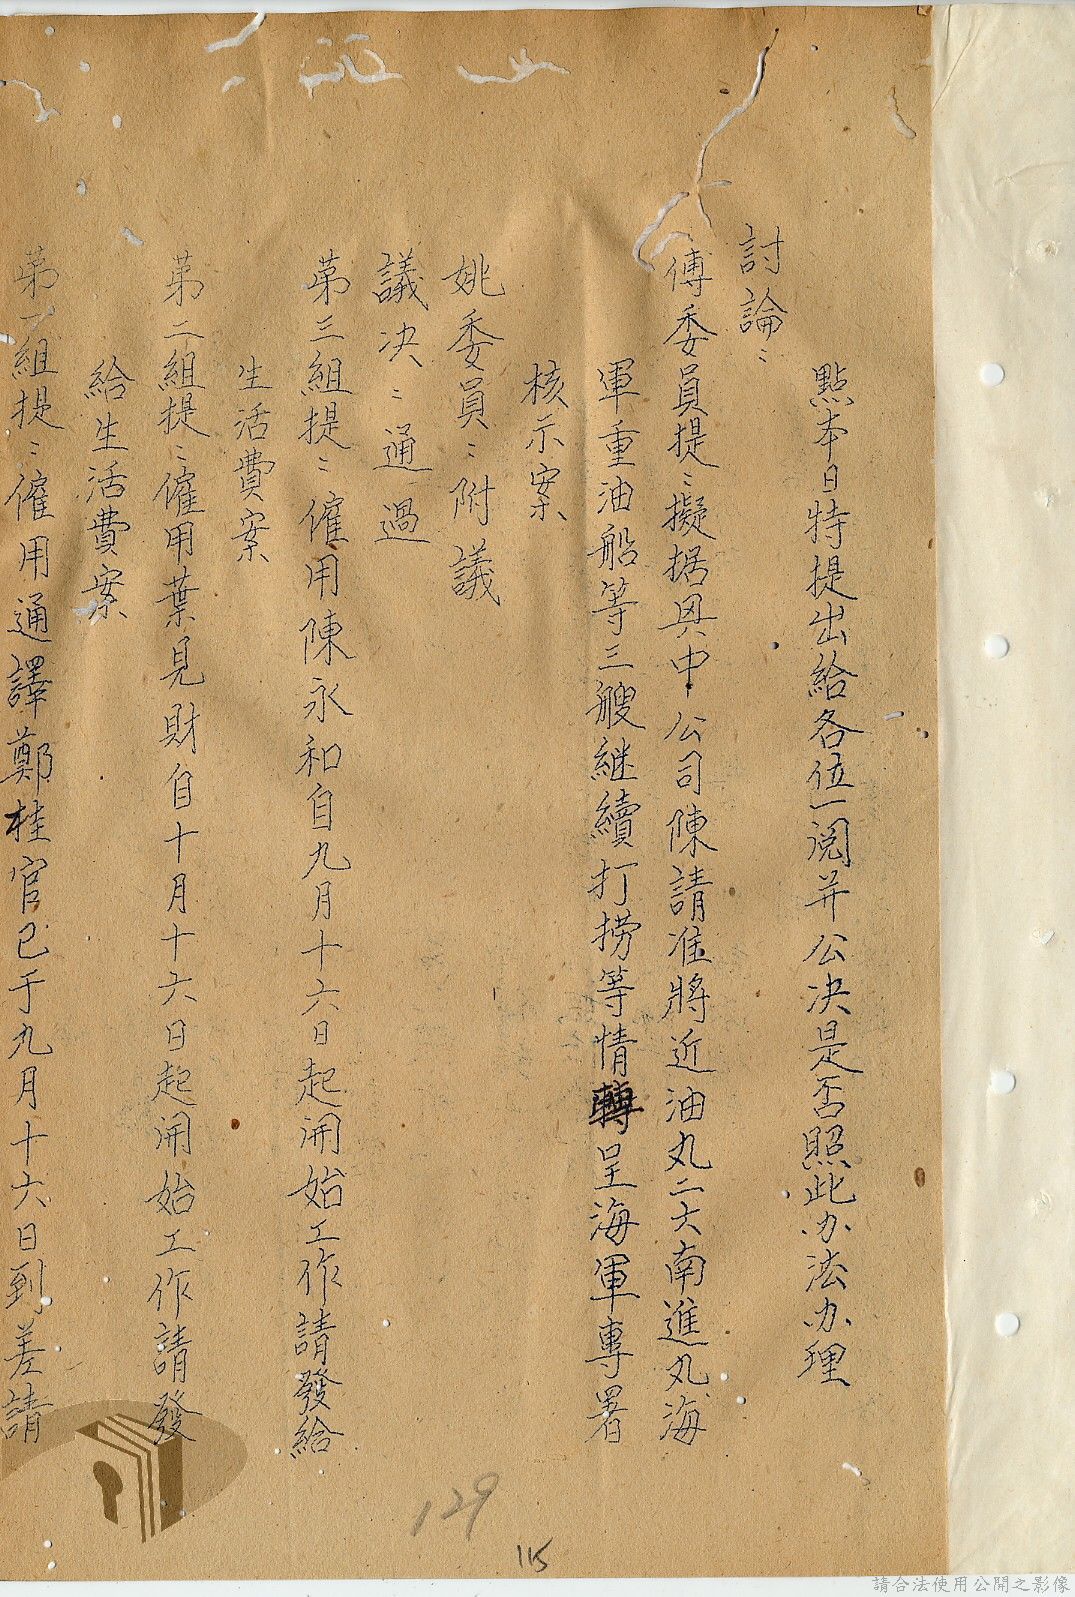 點本日特提出給各位一阅并公决是否照此办法办理
討論：
傅委員提：擬据興中公司陳請准將近油丸二大南進丸海
軍重油船等三艘継續打捞等情轉呈海軍專署
核示案
姚委員：附議
議决：通過
第三組提：僱用陳永和自九月十六日起開始工作請發給
生活費案
第二組提：僱用葉見財自十月十六日起開始工作請發
給生活費案
第一組提：僱用通譯鄭桂官已于九月十六日到差請
129
115
請合法使用公開之影像